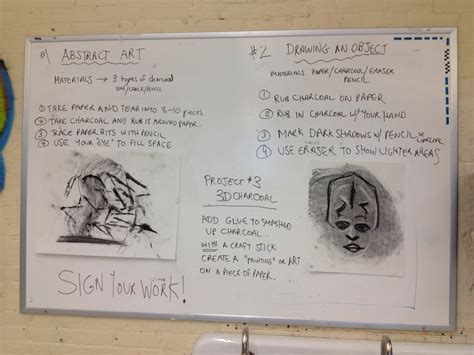 #1 ABSTRACT ART
MATERIALS → 3 types of charcoal
VINE/BLOCK/PENCIL
① TAKE PAPER AND TEAR INTO 8-10 PIECES
② TAKE CHARCOAL AND RUB IT AROUND PAPER...
③ TRACE PAPER BITS WITH PENCIL
④ USE YOUR "EYE" TO FILL SPACE
SIGN YOUR WORK!
#2 DRAWING AN OBJECT
MATERIALS PAPER/CHARCOAL/ERASER
PENCIL
① RUB CHARCOAL ON PAPER
② RUB IN CHARCOAL W/YOUR HAND
③ MARK DARK SHADOWS W/PENCIL OR CHARCOAL
④ USE ERASER TO SHOW LIGHTER AREAS
PROJECT #3
3D CHARCOAL
ADD GLUE TO SMASHED
UP CHARCOAL...
WITH A CRAFT STICK
CREATE A "PAINTING" OR ART
ON A PIECE OF PAPER...